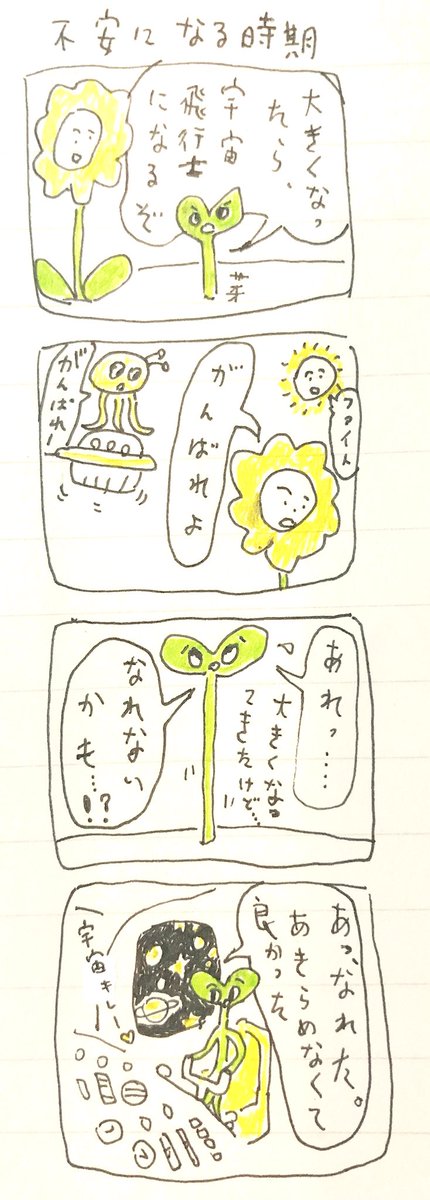 不安になる時期
大きくなっ
たら、
宇宙
飛行士
になるぞ
芽
ファイト
がんばれよ
がんばれー
あれっ……
大きくなっ
てきたけど…
なれない
かも…!?
あっ、なれた。
あきらめなくて
良かった
宇宙キレー